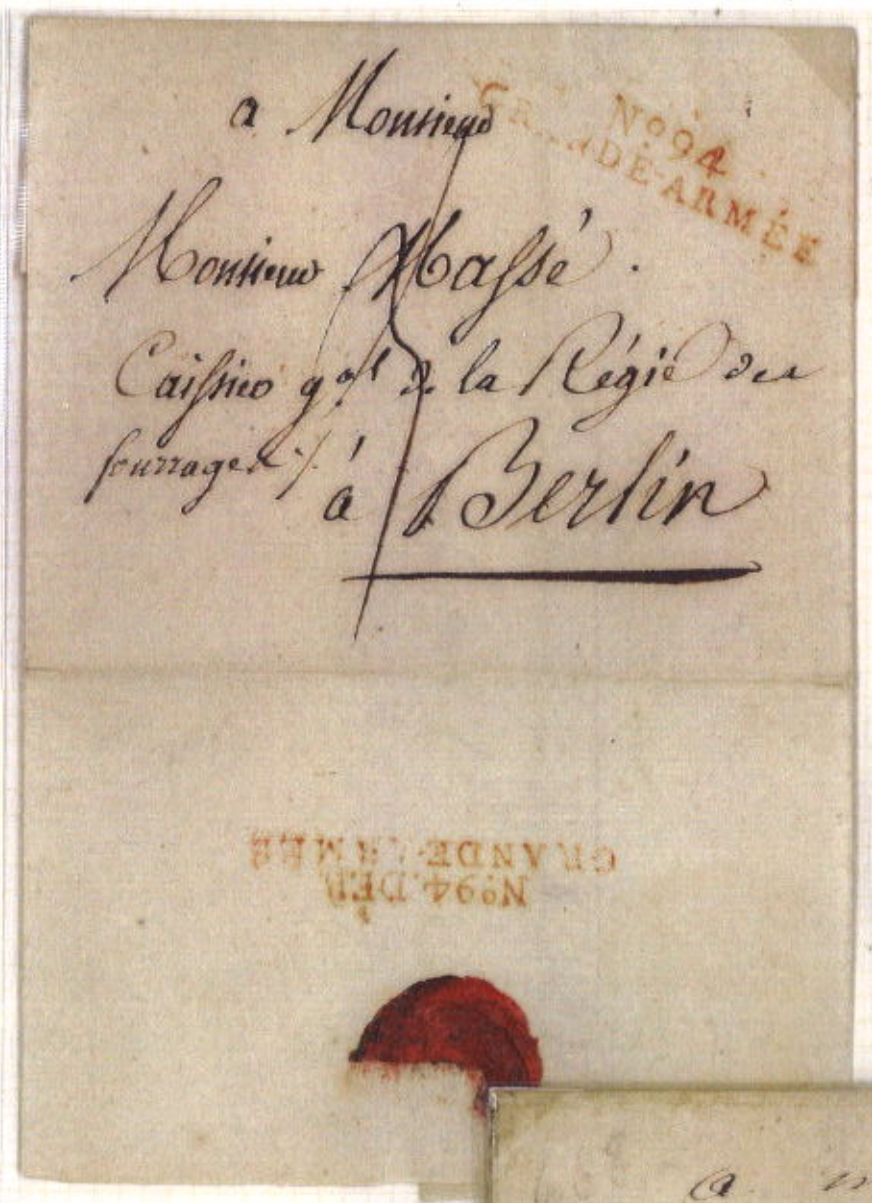 a Monsieur
Nº 94
GRANDE-ARMÉE
Monsieur Massé.
Caissier gal de la Régie des
fourrages ·/.
à Berlin
GRANDE-ARMÉE
Nº 94. DEB
a